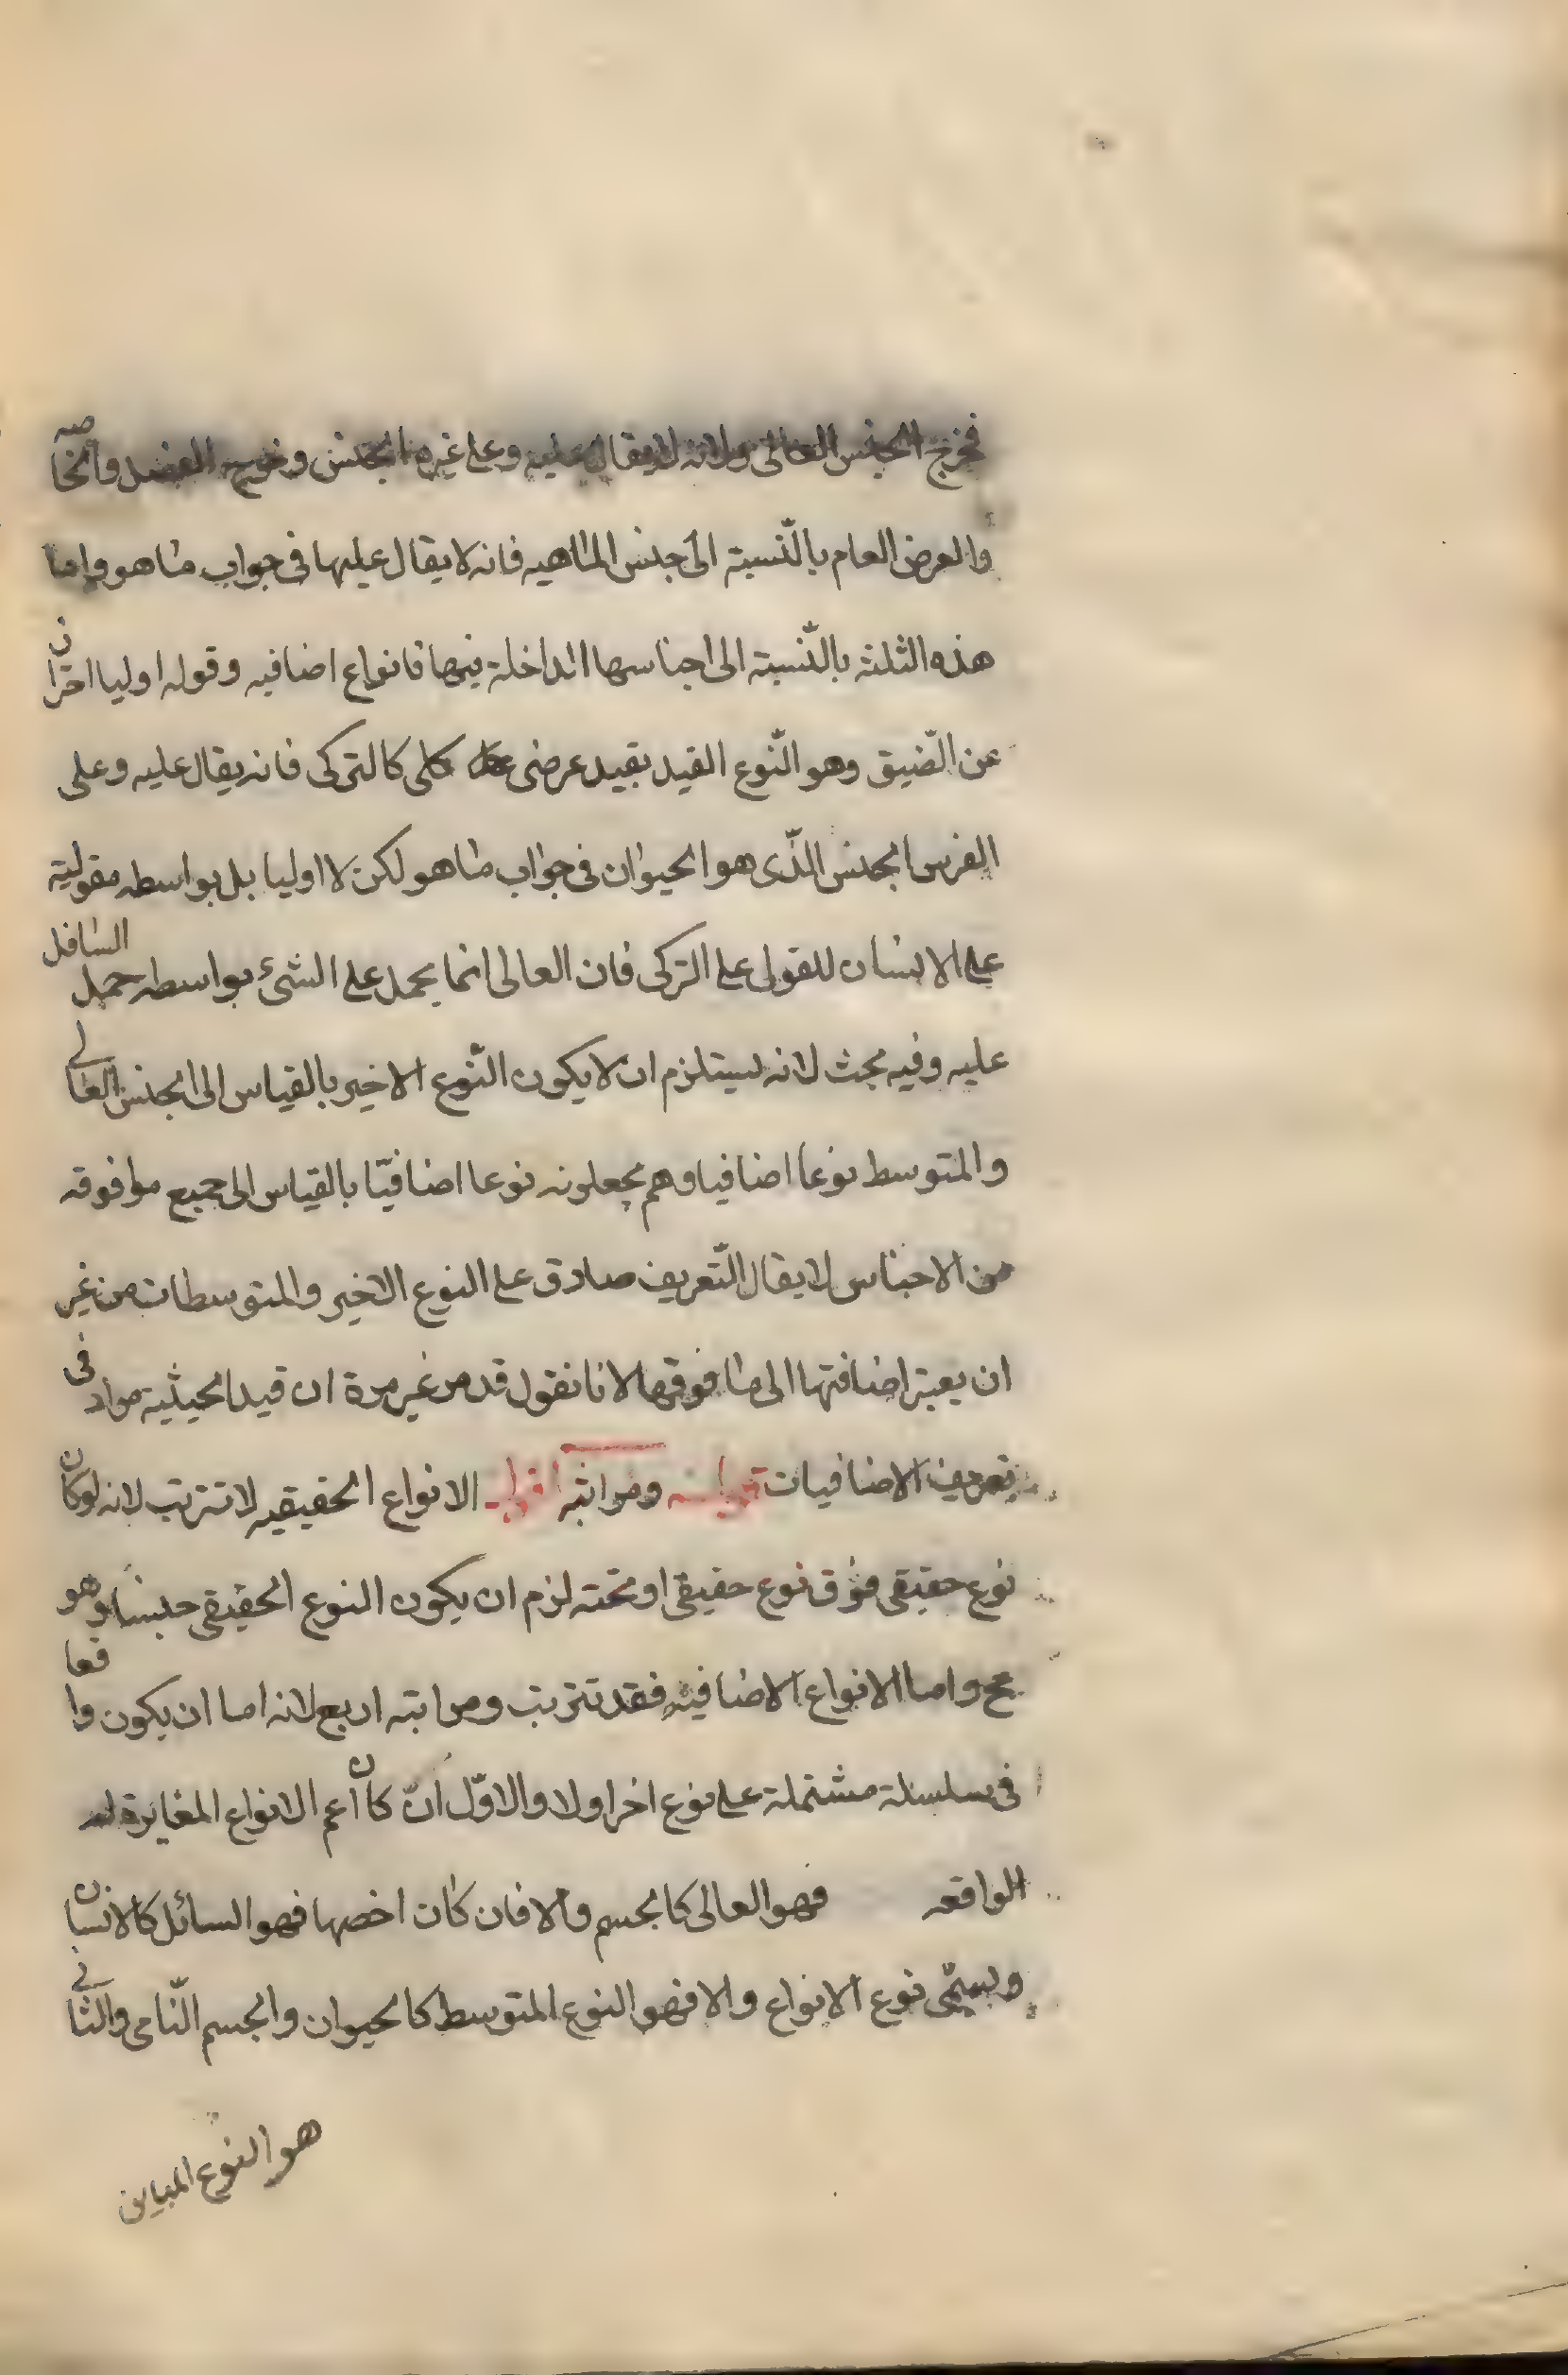 فخرج الجنس العالى ولانه لا يقال عليه وعلى غيره الجنس وخرج الفصل والخاصه
والعرض العام بالنّسبة الى جنس الماهيه فانه لا يقال عليها فى جواب ما هو واما
هذه الثلثه بالنّسبة الى اجناسها الداخلة فيها فانواع اضافيه وقوله اوليا احتران
عن الصّنيق وهو النّوع القيد بقيد عرضى كلى كالتركى فانه يقال عليه وعلى
الفرس الجنس الّذى هو الحيوان فى جواب ما هو لكن لا اوليا بل بواسطه مقولية
على الانسان للقول على التركى فان العالى انما يحمل على الشئ بواسطه حمل السافل
عليه وفيه بحث لانه يستلزم ان لا يكون النّوع الاخير بالقياس الى الجنس العالى
والمتوسط نوعا اضافيا وهم يجعلونه نوعا اضافيّا بالقياس الى جميع ما فوقه
من الاجناس لا يقال التّعريف صادق على النوع الاخير والمتوسطات من غير
ان يعبتر اضافتها الى ما فوقها لانا نقول قد مر غير مرة ان قيد الحيثية مراد فى
تعريف الاضافيات ومراتبه الانواع الحقيقيه لا تترتب لانه لو كان
نوع حقيقى فوق نوع حقيقى او تحته لزم ان يكون النوع الحقيقى جنسا وهو
مح واما الانواع الاضافيّه فقد تترتب ومراتبه اربع لانه اما ان يكون واقعا
فى سلسلة مشتملة على نوع اخر اولا والاوّل انّ كان اعم الانواع المغايرة له
الواقعه فهو العالى كالجسم والا فان كان اخصها فهو السائل كالانسان
ويسمّى نوع الانواع والا فهو النوع المتوسط كالحيوان والجسم النّامى والثانى
هو النوع المباين